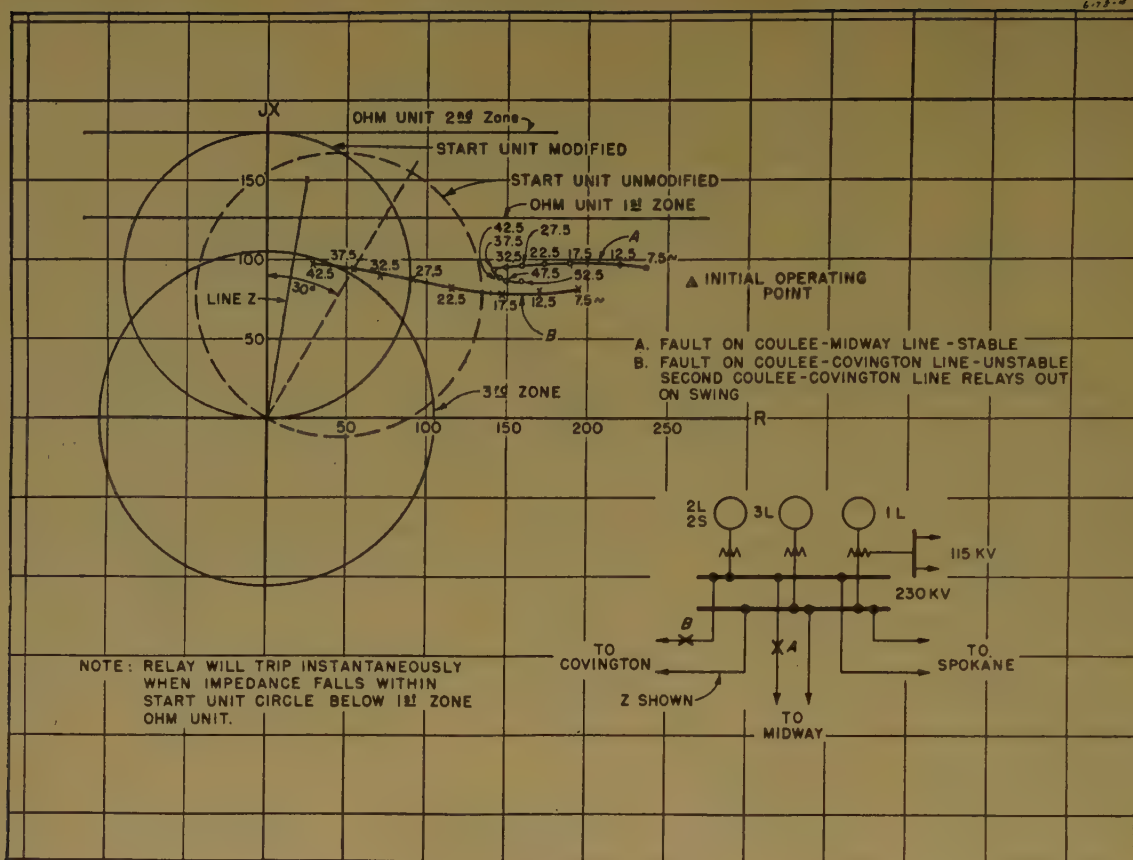 JX
OHM UNIT 2nd Zone
START UNIT MODIFIED
START UNIT UNMODIFIED
OHM UNIT 1st ZONE
150
100
50
42.5
37.5
32.5
27.5
22.5
17.5
A
12.5
7.5~
47.5
52.5
37.5
42.5
32.5
27.5
22.5
17.5
12.5
7.5~
B
30°
LINE Z
3rd ZONE
INITIAL OPERATING
POINT
A. FAULT ON COULEE-MIDWAY LINE-STABLE
B. FAULT ON COULEE-COVINGTON LINE-UNSTABLE
SECOND COULEE-COVINGTON LINE RELAYS OUT
ON SWING
50
100
150
200
250
R
2L
2S
3L
1L
115 KV
230 KV
B
A
TO
COVINGTON
TO
SPOKANE
Z SHOWN
TO
MIDWAY
NOTE: RELAY WILL TRIP INSTANTANEOUSLY
WHEN IMPEDANCE FALLS WITHIN
START UNIT CIRCLE BELOW 1st ZONE
OHM UNIT.